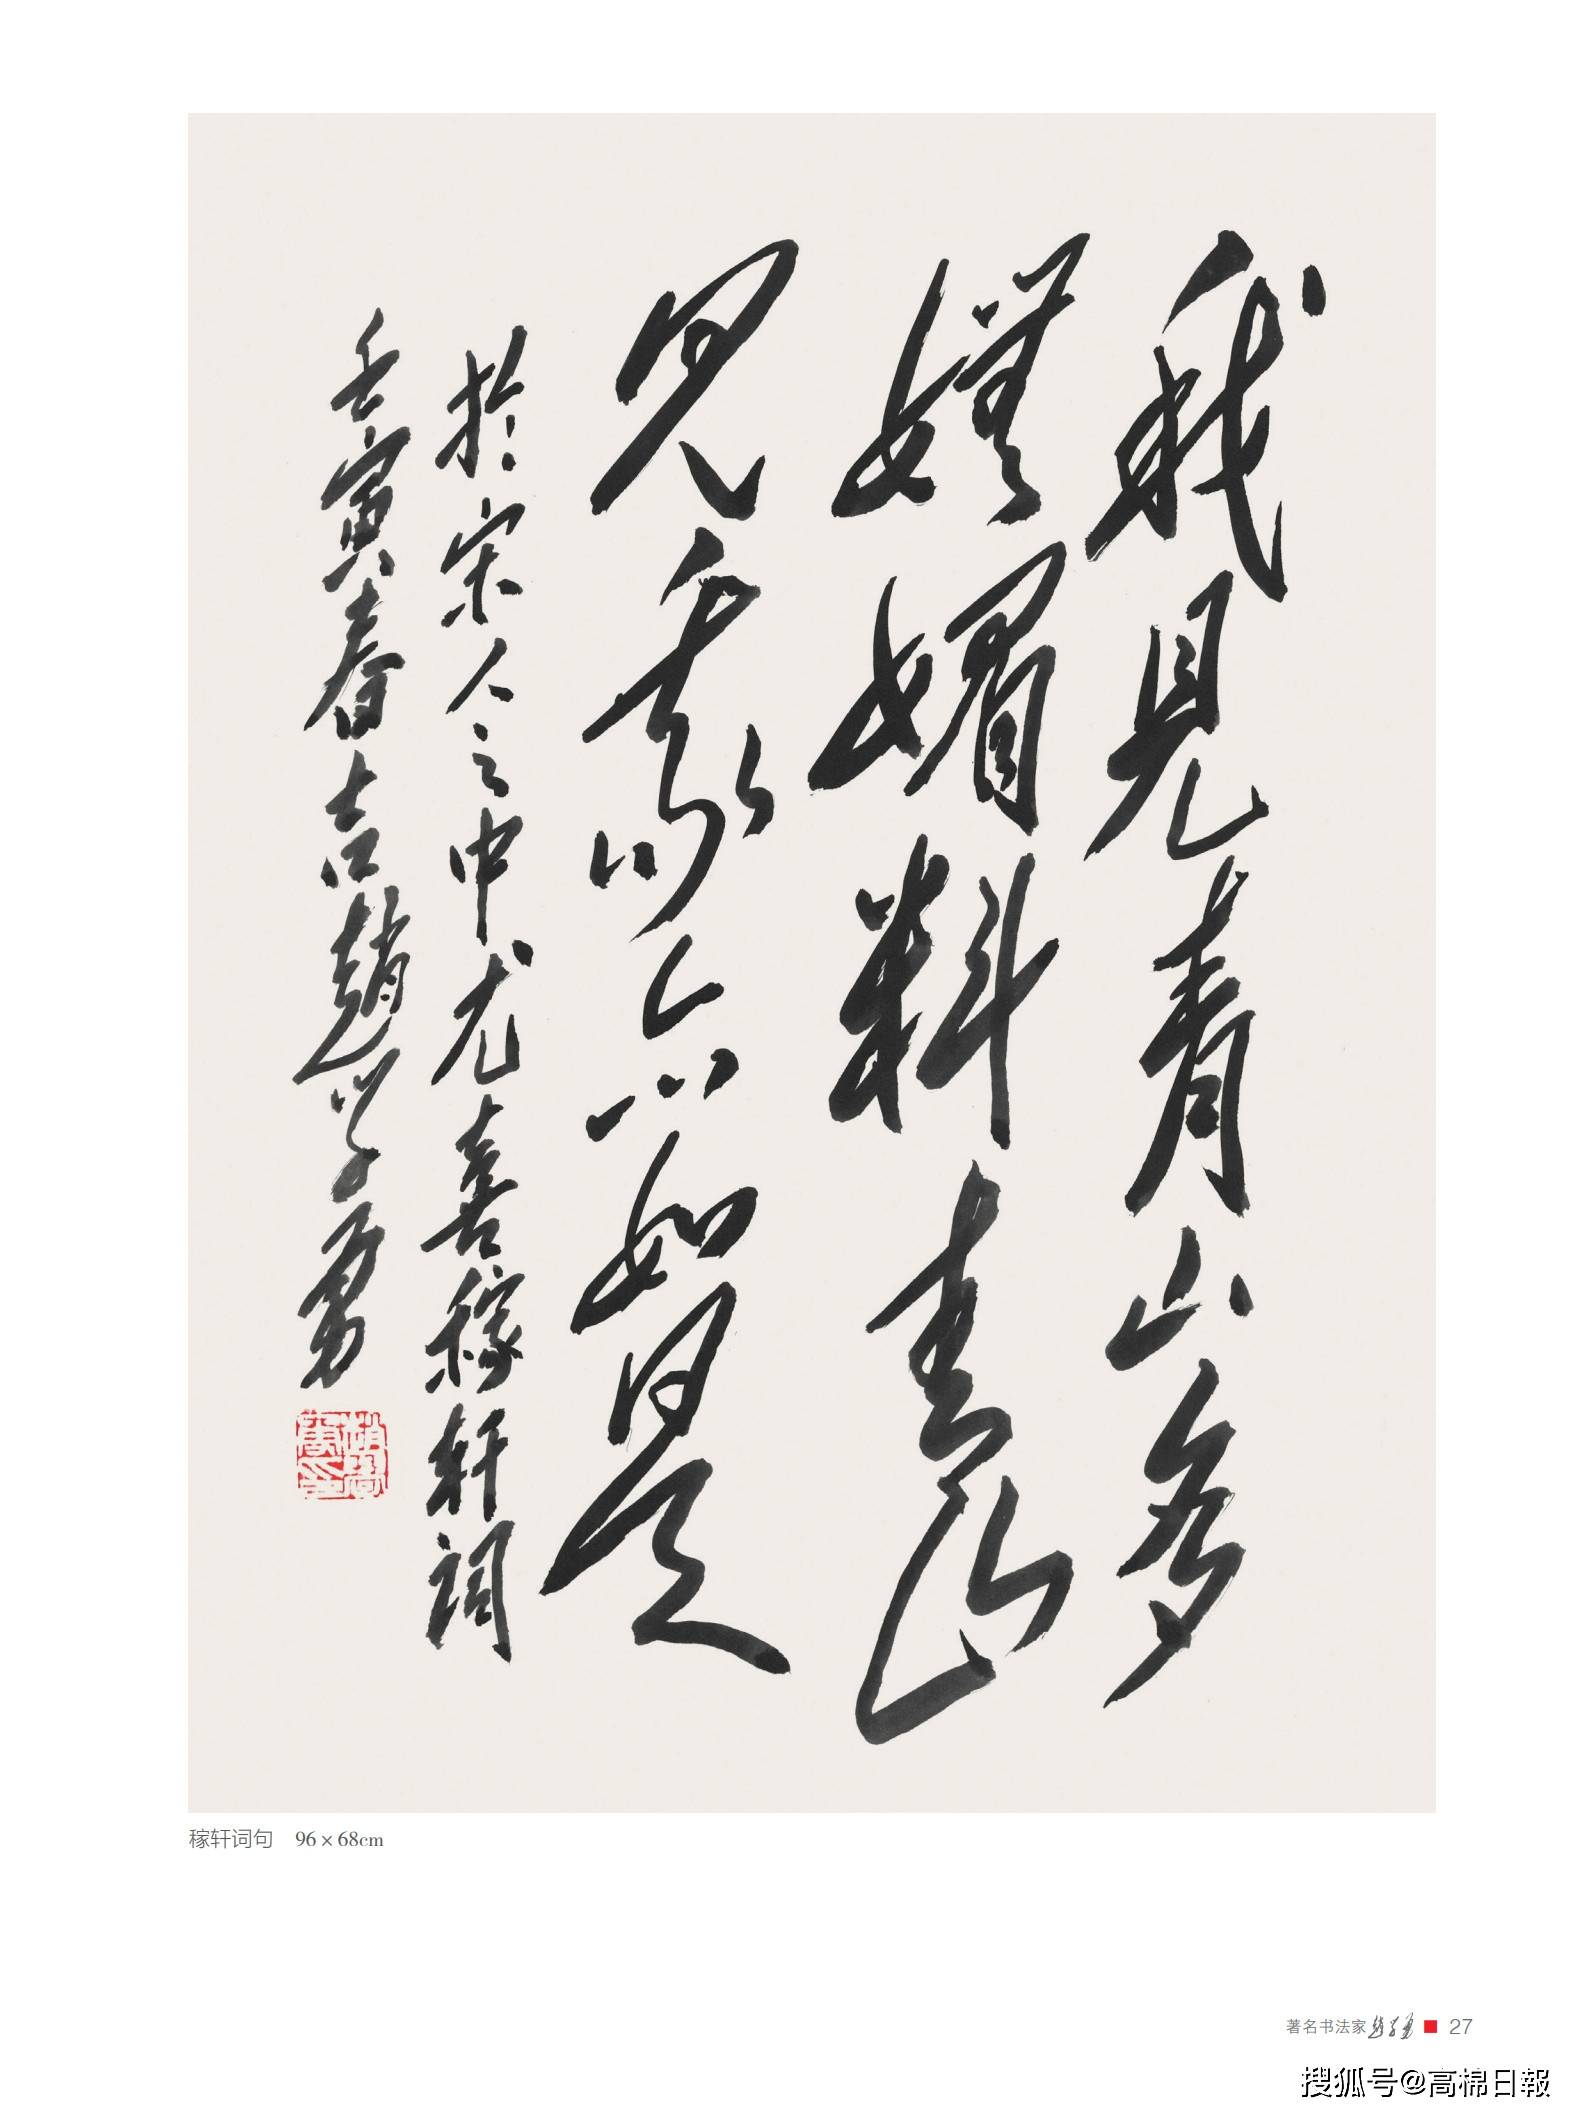 我見青山多
嫵媚料青山
見我亦如是
於宋人之中尤喜稼軒詞
壬寅春吉趙學勇
稼轩词句 96×68cm
著名书法家 27
搜狐号@高棉日報